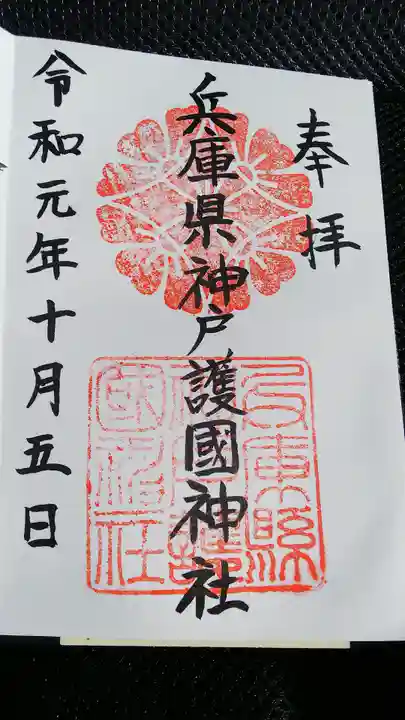 奉拝
兵庫県神戸護國神社
令和元年十月五日
兵庫縣
神戸護
國神社